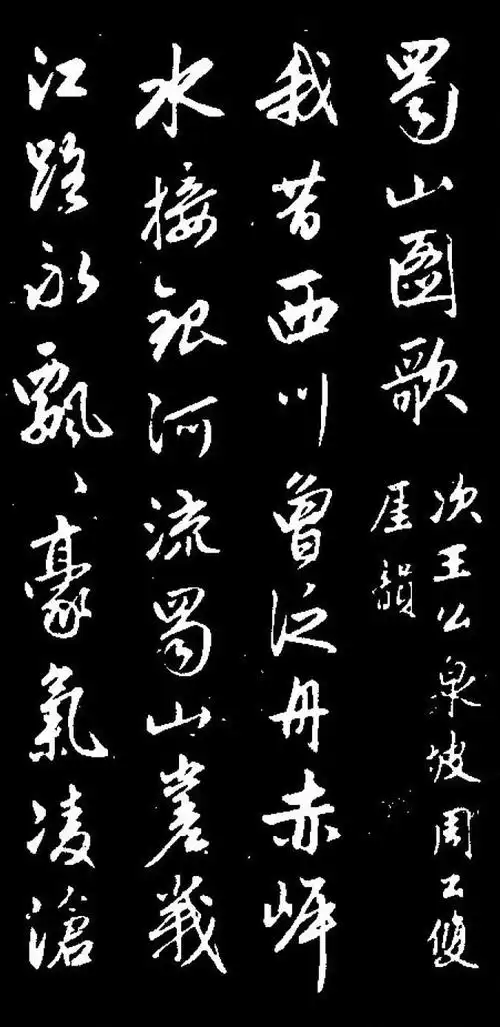 蜀山圖歌
次王公泉坡周公雙
厓韻
我昔西川曾泛舟赤岸
水接銀河流蜀山嵳峩
江路永飄〻豪氣凌滄